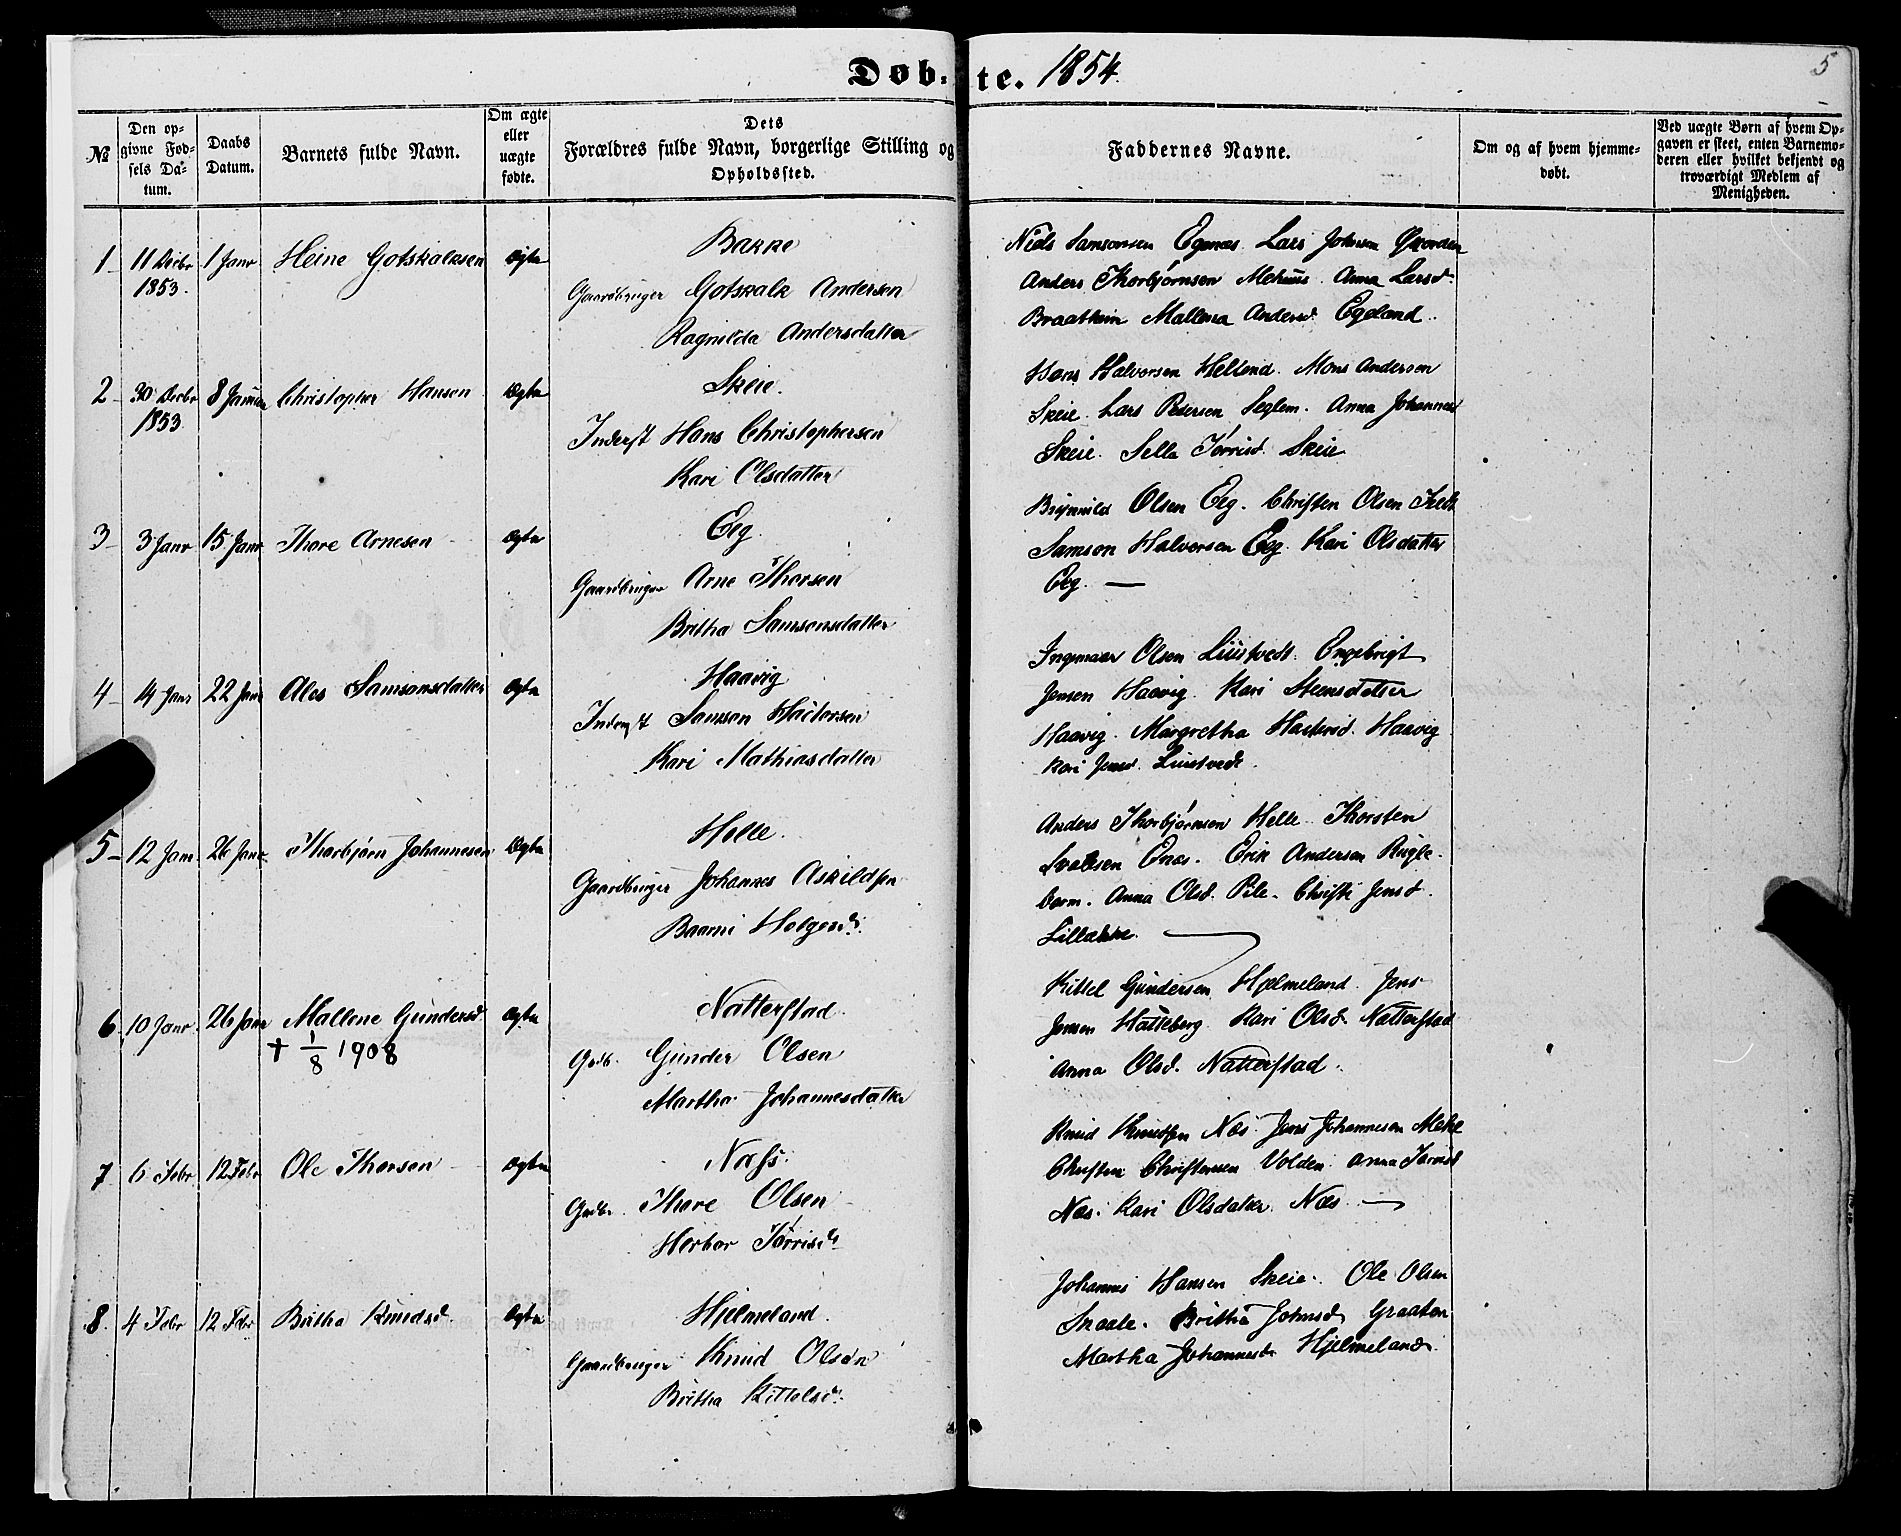 Døb- te. 1854.
5
№
Den op-
givne Fød-
sels Da-
tum.
Daabs
Datum.
Barnets fulde Navn.
Om ægte
eller
uægte
fødte.
Dets
Forældres fulde Navn, borgerlige Stilling og
Opholdssted.
Faddernes Navne.
Om og af hvem hjemme-
døbt.
Ved uægte Børn af hvem Op-
gaven er skeet, enten Barnemo-
deren eller hvilket bekjendt og
troværdigt Medlem af
Menigheden.
1 11 Decbr 1853. 1 Janr Heine Gotskalksen Ægte
Bakke
Gaardbruger Gotskalk Andersen
Ragnilda Andersdatter
Niels Samsonsen Egenæs. Lars Johnsen
Anders Thorbjørnsen Mehuus. Anna Larsd.
Braatheim Mallena Andersd. Egeland.
2 30 Decbr 1853. 8 Januar Christopher Hansen Ægte
Skeie.
Inderst Hans Christophersen
Kari Olsdatter
Hans Halvorsen Helland. Mons Andersen
Skeie. Lars Pedersen Seglem. Anna Johannesd
Skeie. Sella Tørrisd. Skeie
3 3 Janr 15 Janr Thore Arnesen Ægte
Eeg.
Gaardbruger Arne Thorsen
Britha Samsonsdatter
Brynnild Olsen Eeg. Christen Olsen
Samson Halvorsen Eeg. Kari Olsdatter
Eeg. —
4 14 Janr 22 Janr Ales Samsonsdatter Ægte
Haavig
Inderst Samson
Kari Mathiasdatter
Ingemar Olsen Liustvedt. Engebrigt
Jensen Haavig. Kari Steensdatter
Haavig. Margretha Haavig
Kari Jensd. Liustvedt.
5 12 Janr 26 Janr Thorbjørn Johannesen Ægte
Helle.
Gaardbruger Johannes Askildsen
Baarni Helgesd.
Anders Thorbjørnsen Helle. Thorsten
Enæs. Erik Andersen Rugle-
barm. Anna Olsd. Pile. Christi Jensd.
Lillakke.
6 10 Janr. 26 Janr Mallene Gundersd. Ægte
† 1/8 1908
Natterstad
Grdb. Gunder Olsen
Martha Johannesdatter
Kittel Gundersen Hjelmeland. Jens
Jensen Hatteberg. Kari Olsd. Natterstad
Anna Olsd. Natterstad.
7 6 Febr. 12 Febr Ole Thorsen Ægte
Næss.
Grdbr. Thore Olsen
Herbor Tørrisdr
Knud Knudsen Næs. Jens Johannesen Mehl
Christen Christensen Volden. Anna Tørrisd
Næs. Kari Olsdatter Næs. —
8. 4 Febr 12 Febr Britha Knudsd. Ægte
Hjelmeland.
Gaardbruger Knud Olsen
Britha Kittelsdr.
Johannes Hansen Skeie. Ole Olsen
Snaale. Britha Johnsd. Graaten
Martha Johannesdr Hjelmeland.